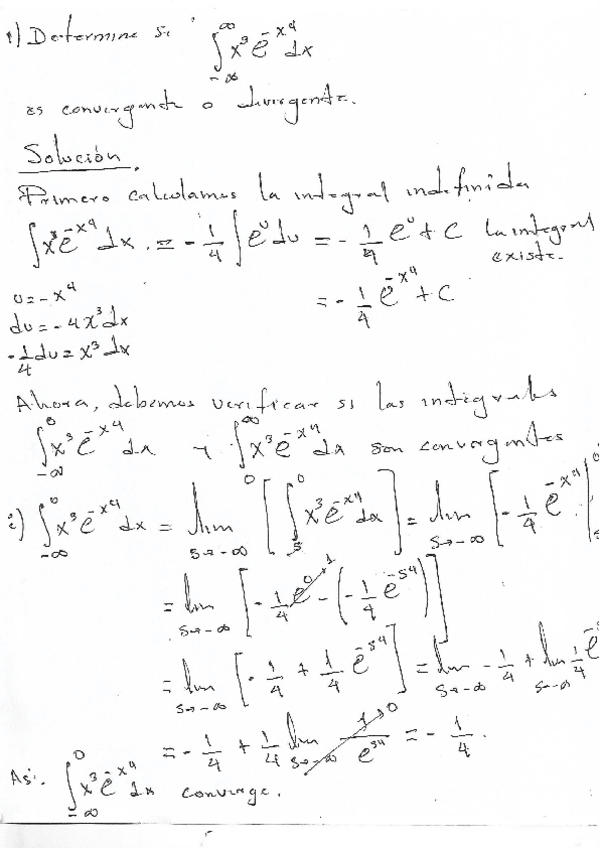 1) Determine si ∫_{-∞}^{∞} x³ e^{-x⁴} dx
es convergente o divergente.
Solución.
Primero calculamos la integral indefinida
∫ x³ e^{-x⁴} dx = -1/4 ∫ e^u du = -1/4 e^u + C La integral existe.
u = -x⁴
= -1/4 e^{-x⁴} + C
du = -4x³ dx
-1/4 du = x³ dx
Ahora, debemos verificar si las integrales
∫_{-∞}^{0} x³ e^{-x⁴} dx y ∫_{0}^{∞} x³ e^{-x⁴} dx son convergentes
i) ∫_{-∞}^{0} x³ e^{-x⁴} dx = lim_{s→-∞} [∫_{s}^{0} x³ e^{-x⁴} dx] = lim_{s→-∞} [-1/4 e^{-x⁴} |^{0}
= lim_{s→-∞} [-1/4 e^0 → 1 - (-1/4 e^{-s⁴})]
= lim_{s→-∞} [-1/4 + 1/4 e^{-s⁴}] = lim_{s→-∞} -1/4 + lim_{s→-∞} 1/4 e
= -1/4 + 1/4 lim_{s→-∞} 1/e^{s⁴} → 0 = -1/4.
Así. ∫_{-∞}^{0} x³ e^{-x⁴} dx converge.